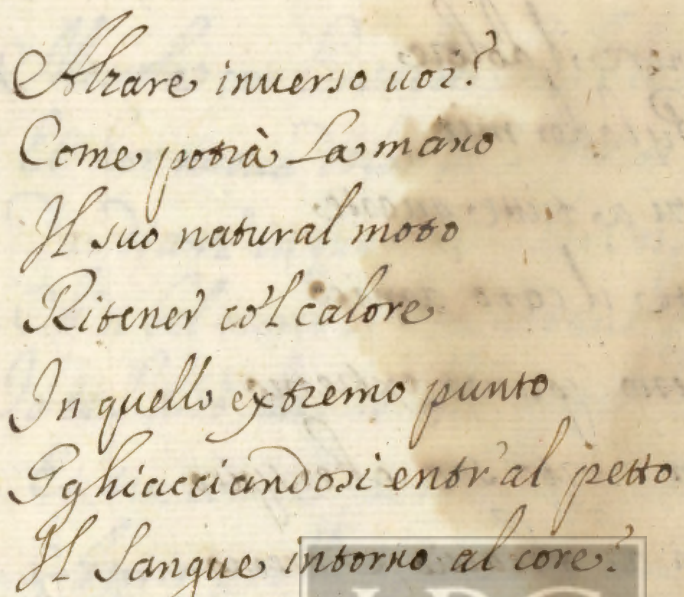 Alzare inuerso uoi?
Come potrà La mano
Il suo natural moto
Ritener co'l calore
In quello extremo punto
Gghiacciandosi entr'al petto
Il Sangue intorno al core?